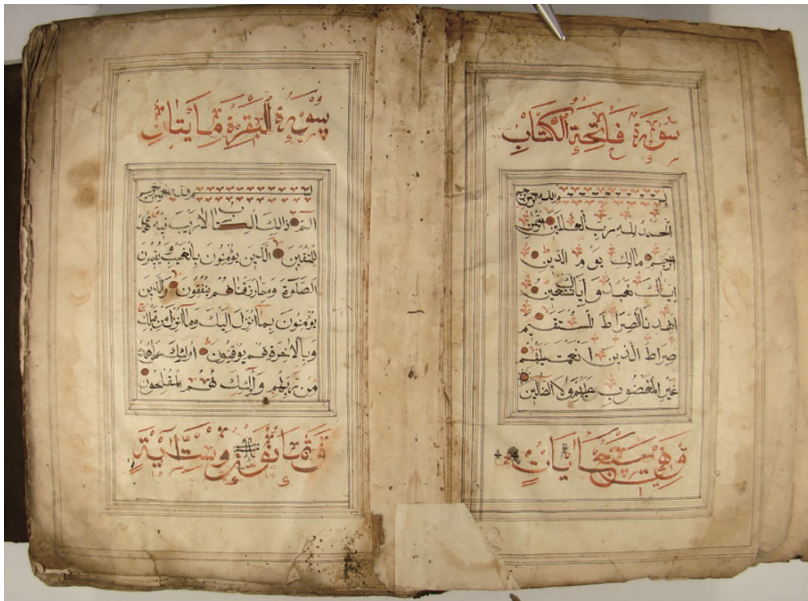 سورة فاتحة الكتاب
بسم الله الرحمن الرحيم
الحمد لله رب العلمين الرحمن
الرحيم مالك يوم الدين
اياك نعبد و اياك نستعين
اهدنا الصراط المستقيم
صراط الذين انعمت عليهم
غير المغضوب عليهم ولا الضالين
وهي سبع ايات
سورة البقرة مايتان
بسم الله الرحمن الرحيم
الم ذالك الكتاب لاريب فيه هدى
للمتقين الذين يؤمنون بالغيب ويقيمون
الصلوة ومما رزقناهم ينفقون والذين
يؤمنون بما انزل اليك وما انزل من قبلك
وبالاخرة هم يوقنون اولئك على هدى
من ربهم واولئك هم المفلحون
وست اية